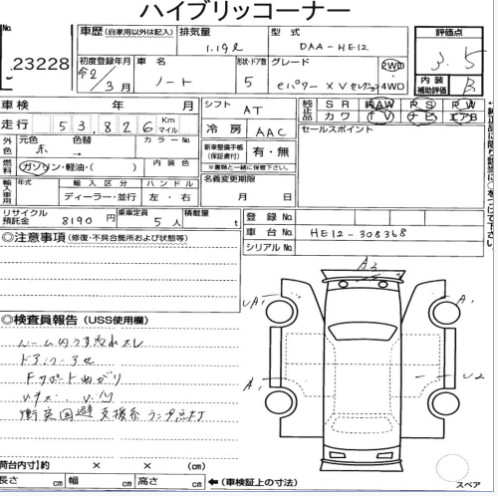 ハイブリッコーナー
No.
23228
車歴 (自家用以外は記入)
排気量
1.19ℓ
型式
DAA-HE12
評価点
3.5
初度登録年月
令2/3月
車名
ノート
形状・ドア数
5
グレード
eパワー X V セレクション
2WD
4WD
内装
補助評価
B
車検 年 月
シフト
AT
純正品
SR AAW RS RW
カワ TV ナビ エアB
走行 53,826 Km
マイル
冷房
AAC
セールスポイント
外色
元色
色替
カラーNo.
赤 →
新車整備手帳
(保証書付)
有・無
※書類と一緒に保管下さい。
燃料
ガソリン・軽油・( )
内装色
名義変更期限
月 日
輸入車用
年式
輸入区分
ハンドル
ディーラー・並行
左・右
リサイクル
預託金
8190 円
乗車定員
5 人
積載量
t
登録No.
車台No.
HE12-308368
シリアルNo.
◎注意事項 (修復・不具合箇所および状態等)
A3
UA1
A1
◎検査員報告 (USS使用欄)
ルーム内うす汚れ スレ
A1
U2
衝突回避支援系ランプ点灯
荷台内寸)約 × × (cm)
長さ cm 幅 cm 高さ cm ←(車検証上の寸法)
スペア